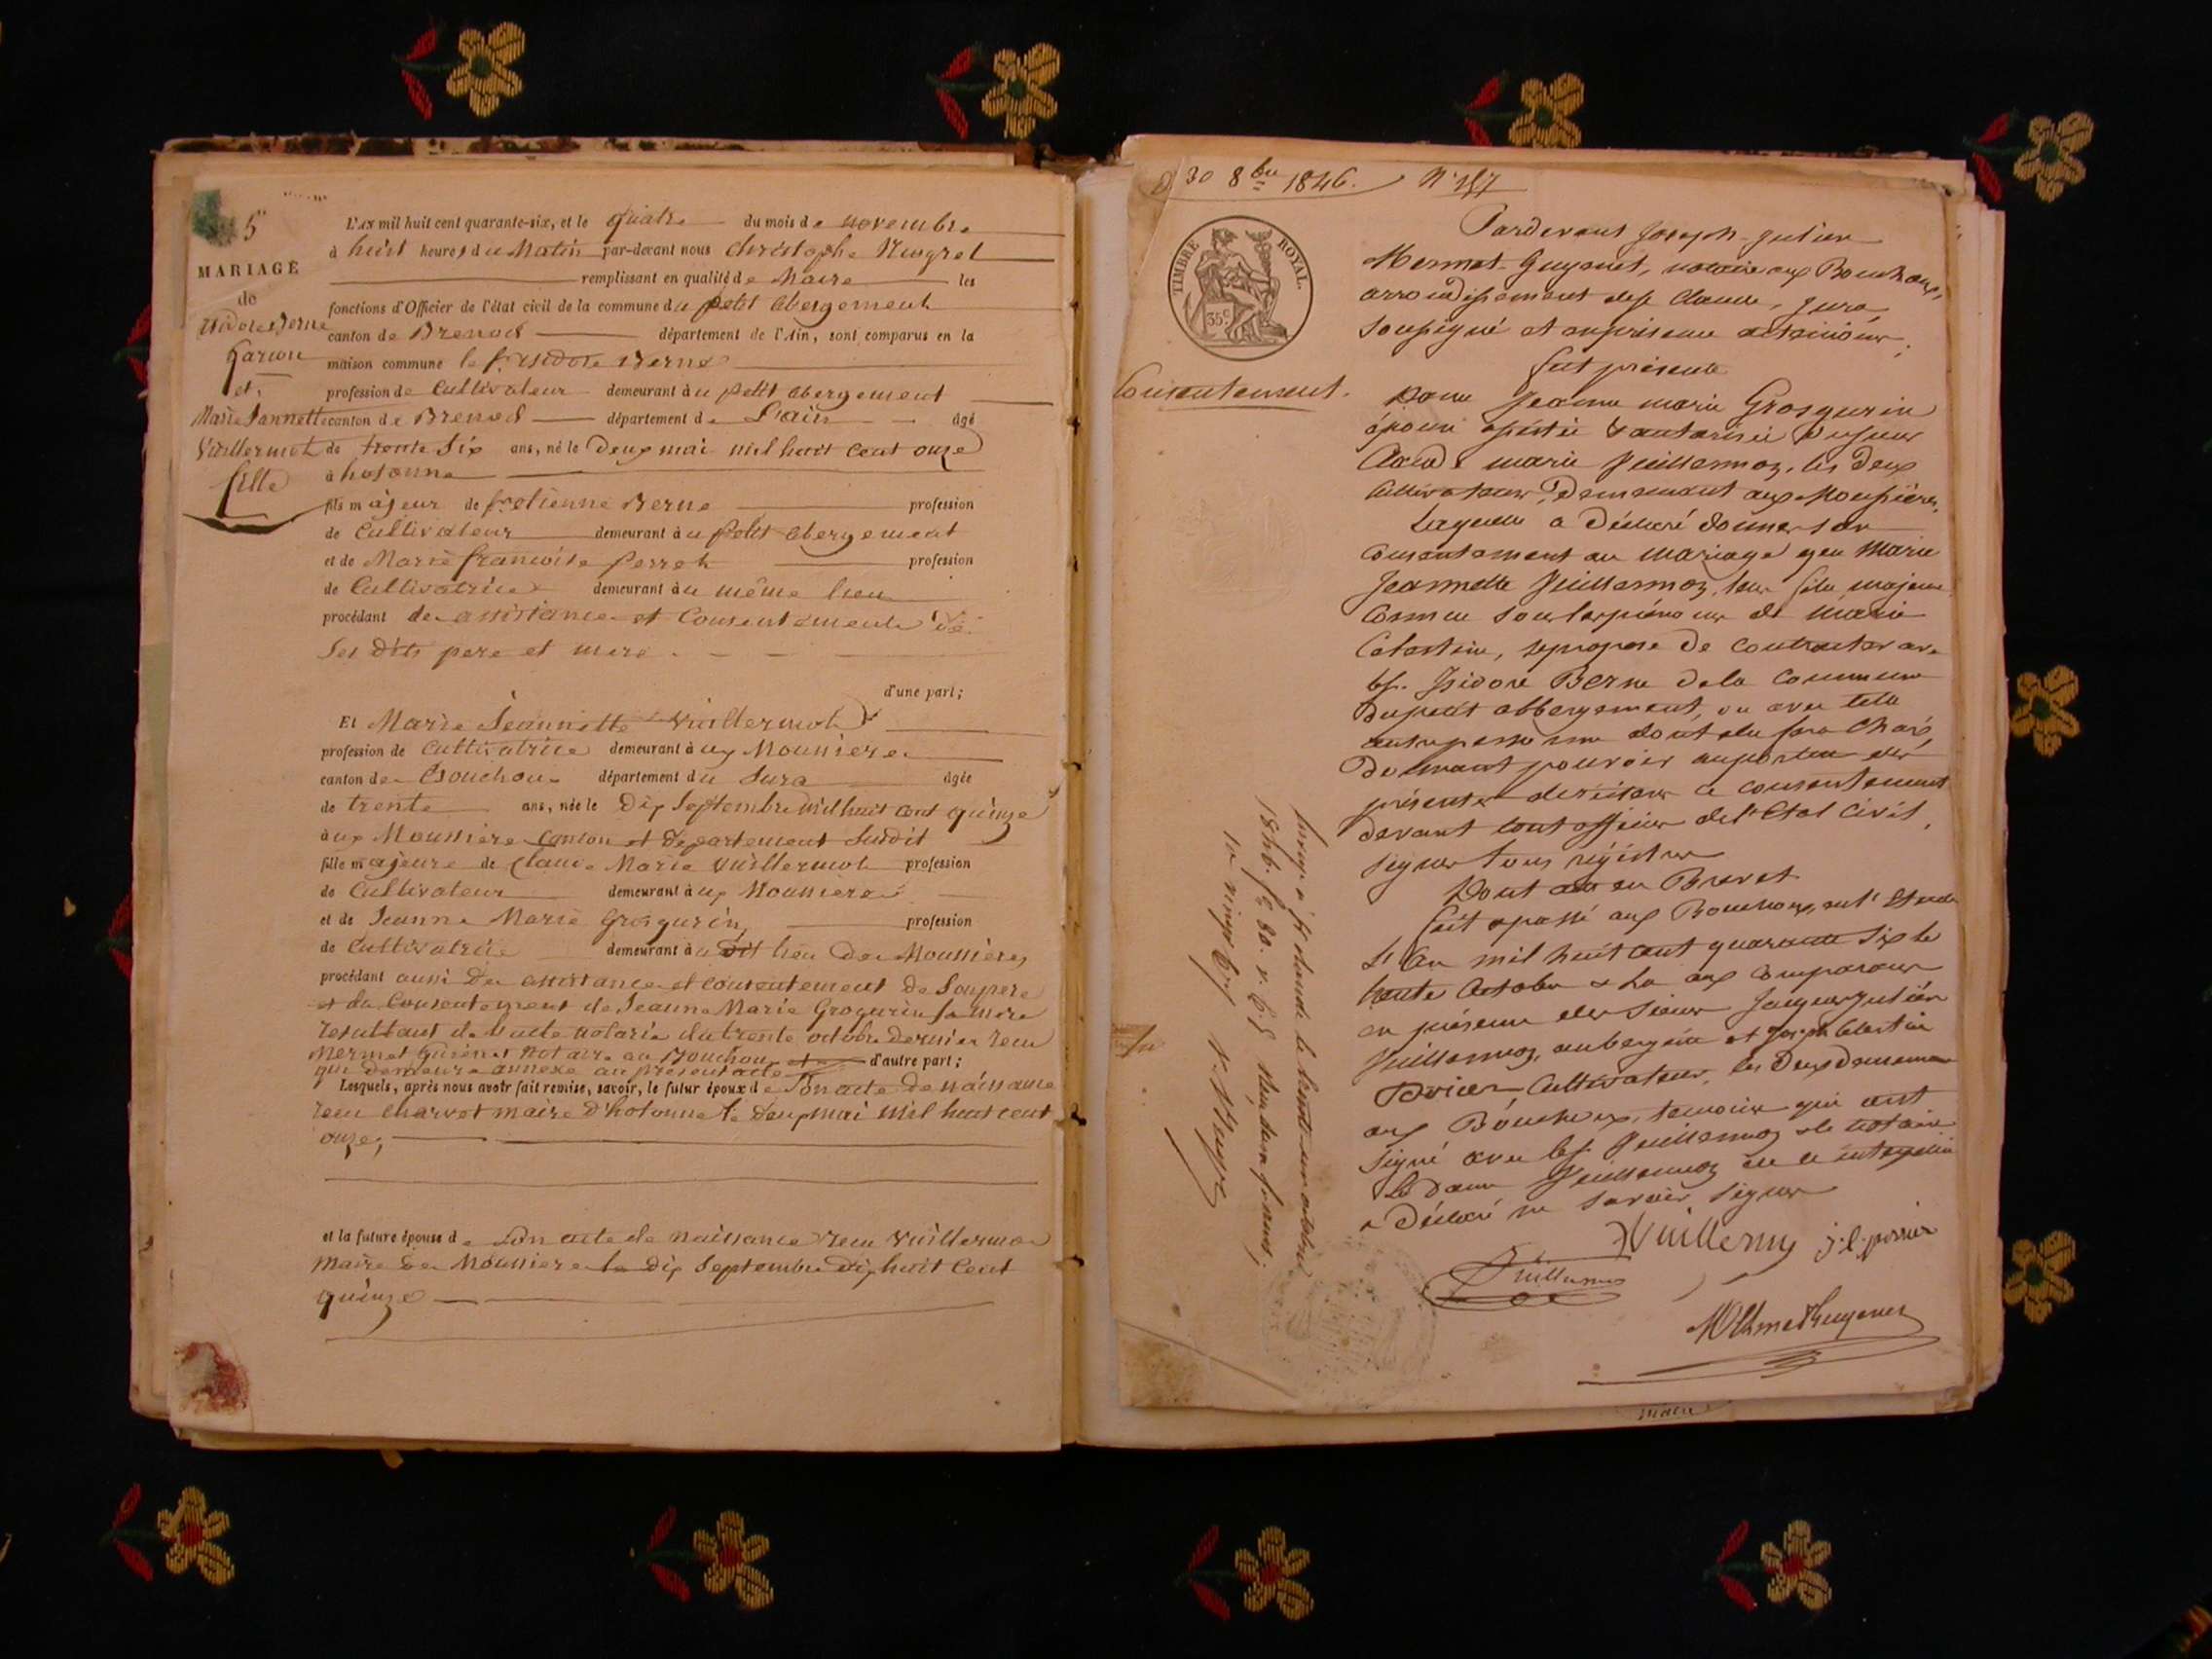 5
MARIAGE
de
Isidore Berne
Garçon
et
Marie Jannette
Vuillermot
fille
L'AN mil huit cent quarante-six, et le quatre du mois de novembre
à huit heures du Matin par-devant nous Christophe
remplissant en qualité de Maire les
fonctions d'Officier de l'état civil de la commune du petit abergement
canton de Brenod département de l'Ain, sont comparus en la
maison commune le sr isidore Berne
profession de Cultivateur demeurant au petit abergement
canton de Brenod département de L'ain agé
de trente Six ans, né le Deux mai mil huit cent onze
à hotonne
fils majeur de sr etienne Berne profession
de Cultivateur demeurant au petit abergement
et de Marie francoise perret profession
de Cultivatrice demeurant au même lieu
procédant de assistance et Consentement de
Ses dits pere et mere
d'une part;
Et Marie Jeannette Vuillermot
profession de Cultivatrice demeurant à ux Moussiere
canton de Bouchoux département du Jura agée
de trente ans, née le Dix Septembre mil huit cent quinze
à ux Moussiere canton et departement Susdit
fille majeure de Claude Marie Vuillermot profession
de Cultivateur demeurant à ux Moussiere
et de Jeanne Marie Grosgurin profession
de Cultivatrice demeurant au dit lieu des Moussières
procédant aussi de assistance et consentement de Son pere
et du Consentement de Jeanne Marie Grogurin sa mere
resultant de l'acte notarié du trente octobre dernier recu
Mermet Guienet Notaire au Bouchoux d'autre part;
qui demeure annexé au présent acte
Lesquels, après nous avoir fait remise, savoir, le futur époux de Son acte de naissance
recu Charvet maire D'hotonne le deux mai mil huit cent
onze,
et la future épouse de Son acte de naissance recu Vuillermoz
Maire des Moussiere le dix Septembre dix huit Cent
quinze
D 30 8bre 1846. N° 157
TIMBRE ROYAL.
35 c
Consentement.
Pardevant Joseph-Julien
Mermet-Guyenet, notaire aux Bouchoux,
arrondissement de St Claude, Jura
soussigné et en présence des témoins
fut présente
Dame Jeanne marie Grosgurin
épouse assistée & autorisée du sieur
Claude marie Vuillermoz, les deux
Cultivateurs, Demeurant aux Moussières,
Laquelle a Déclaré donner son
Consentement au mariage que Marie
Jeannette Vuillermoz, leur fille majeure
Connue sous les prénoms de Marie
Celestine, se propose De Contracter avec
le sr. Isidore Berne de la Commune
du petit abbergement, ou avec telle
autre personne dont elle fera Choix,
Donnant pouvoir au porteur des
présentes de réitérer ce consentement
devant tout officier de l'Etat Civil,
signer tous régistres
Dont acte en Brevet
fait & passé aux Bouchoux, en l'Etude
L'An mil huit Cent quarante Six le
trente Octobre & Lu aux Comparans
en présence des Sieurs Jacques Julien
Vuillermoz, aubergiste et Joseph Celestin
Cultivateur, les Deux demeurant
aux Bouchoux, témoins qui ont
signé avec le sr Vuillermoz & le notaire
La dame Vuillermoz de ce interpellée
a Déclaré ne savoir signer
Vuillermoz
Mermet Guyenet
maire